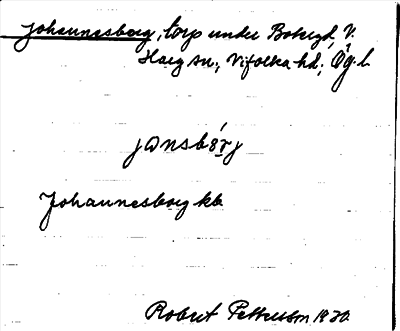 Johannesberg, torp under Boberg, V.
Harg sn., Vifolka hd., Ög. l.
jɑnsbærj
Johannesberg kb
Robert Pettersson 1930.